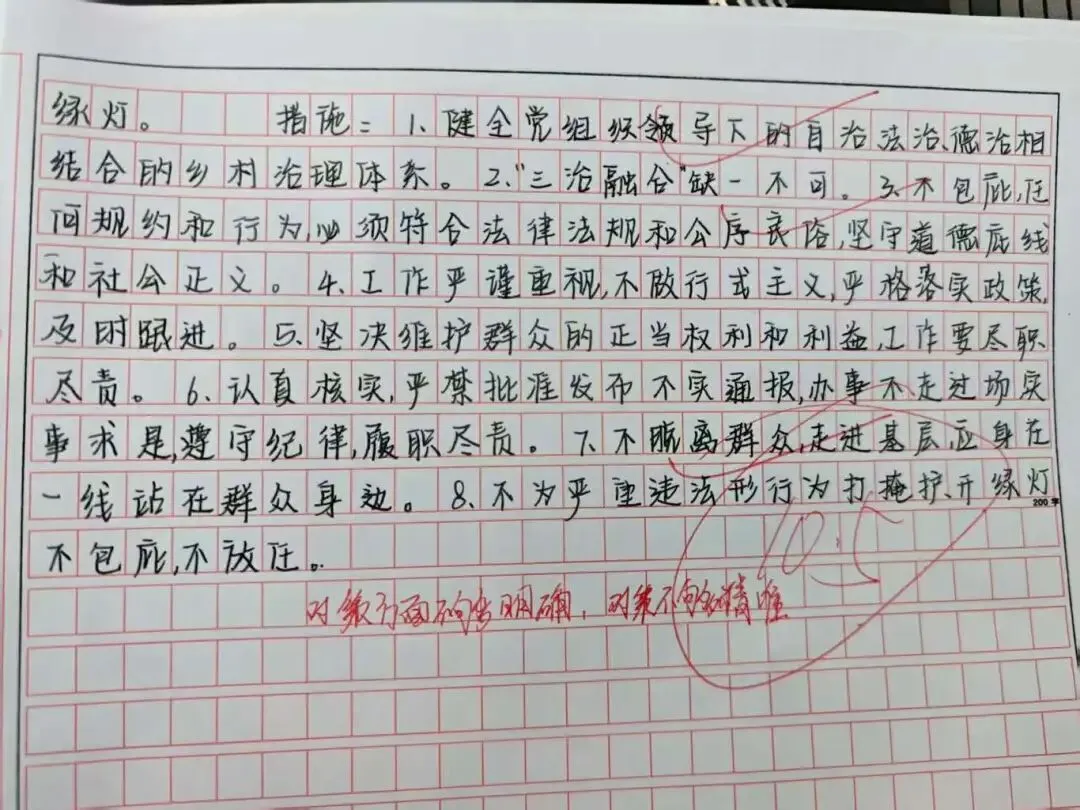 绿灯。 措施：1、健全党组织领导下的自治、法治、德治相
结合的乡村治理体系。2、"三治融合"缺一不可。3、不包庇,任
何规约和行为,必须符合法律法规和公序良俗,坚守道德底线
和社会正义。4、工作严谨重视,不做行式主义,严格落实政策,
及时跟进。5、坚决维护群众的正当权利和利益,工作要尽职
尽责。6、认真核实,严禁批准发布不实通报,办事不走过场实
事求是,遵守纪律,履职尽责。7、不脱离群众,走进基层,应身在
一线站在群众身边。8、不为严重违法形行为打掩护、开绿灯
200字
不包庇,不放任。
10.5
对策方面不够明确，对策不够精准